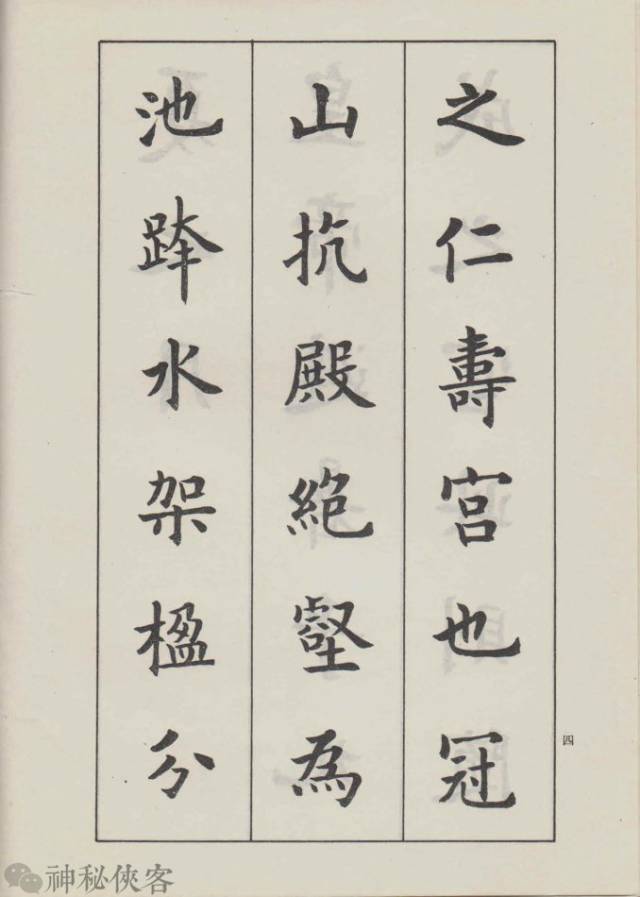 之仁壽宮也冠
山抗殿絕壑為
池跨水架楹分
四
神秘俠客